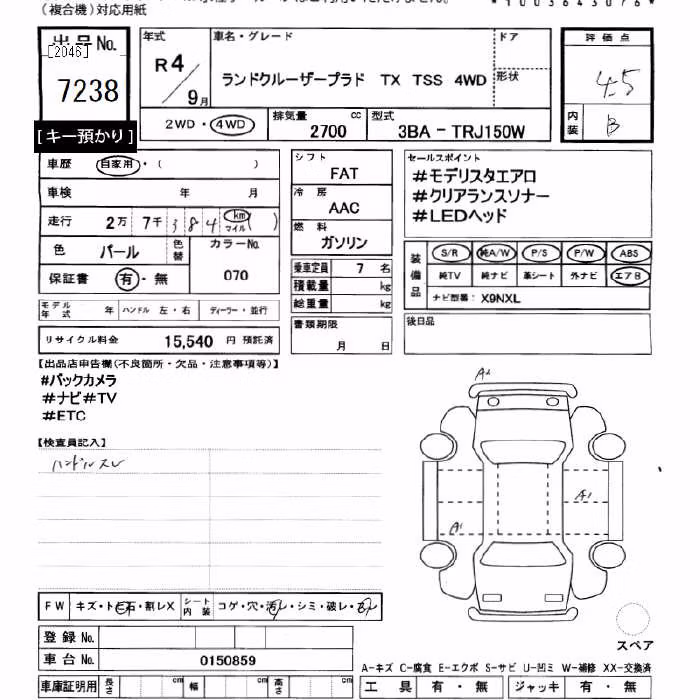 (複合機)対応用紙
出品No.
[2046]
7238
[キー預かり]
年式
R4/9月
車名・グレード
ランドクルーザープラド TX TSS 4WD
ドア
形状
評価点
4.5
内装
B
2WD・4WD
排気量
2700 cc
型式
3BA - TRJ150W
車歴 自家用・( )
車検 年 月
走行 2万 7千 3 8 4 km マイル ( )
色 パール 色替 カラーNo.
070
保証書 有・無
モデル年式 年 ハンドル 左・右 ディーラー・並行
リサイクル料金 15,540 円 預託済
シフト
FAT
冷房
AAC
燃料
ガソリン
乗車定員 7 名
積載量 kg
総重量 kg
書類期限
月 日
セールスポイント
#モデリスタエアロ
#クリアランスソナー
#LEDヘッド
装備品
S/R 純A/W P/S P/W ABS
純TV 純ナビ 革シート 外ナビ エアB
ナビ型番: X9NXL
後日品
【出品店申告欄(不良箇所・欠品・注意事項等)】
#バックカメラ
#ナビ#TV
#ETC
【検査員記入】
ハンドルスレ
A2
A1
A1
FW キズ・トビ石・割レX シート内装 コゲ・穴・汚レ・シミ・破レ・スレ
登録No.
車台No. 0150859
車庫証明用 長さ cm 幅 cm 高さ cm
スペア
A-キズ C-腐食 E-エクボ S-サビ U-凹ミ W-補修 XX-交換済
工具 有・無 ジャッキ 有・無